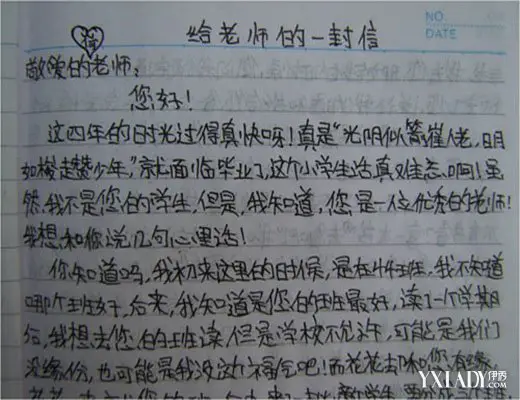 NO.
DATE
给老师的一封信
敬爱的老师:
您好!
这四年的时光过得真快呀!真是"光阴似箭催人老,日月
如梭赶少年,"就面临毕业了,这个小学生活真难忘啊!虽
然,我不是您的学生,但是,我知道,您是一位优秀的老师!
我想和你说几句心里话!
你知道吗,我初来这里的时候,是在4年班,我不知道
哪个班好,后来,我知道是您的班最好,读了一个学期
后,我想去您的班读,但是学校不允许,可能是我们
没缘份,也可能是我没这个福气吧!而花花却和你有缘,
YXLADY.COM伊秀